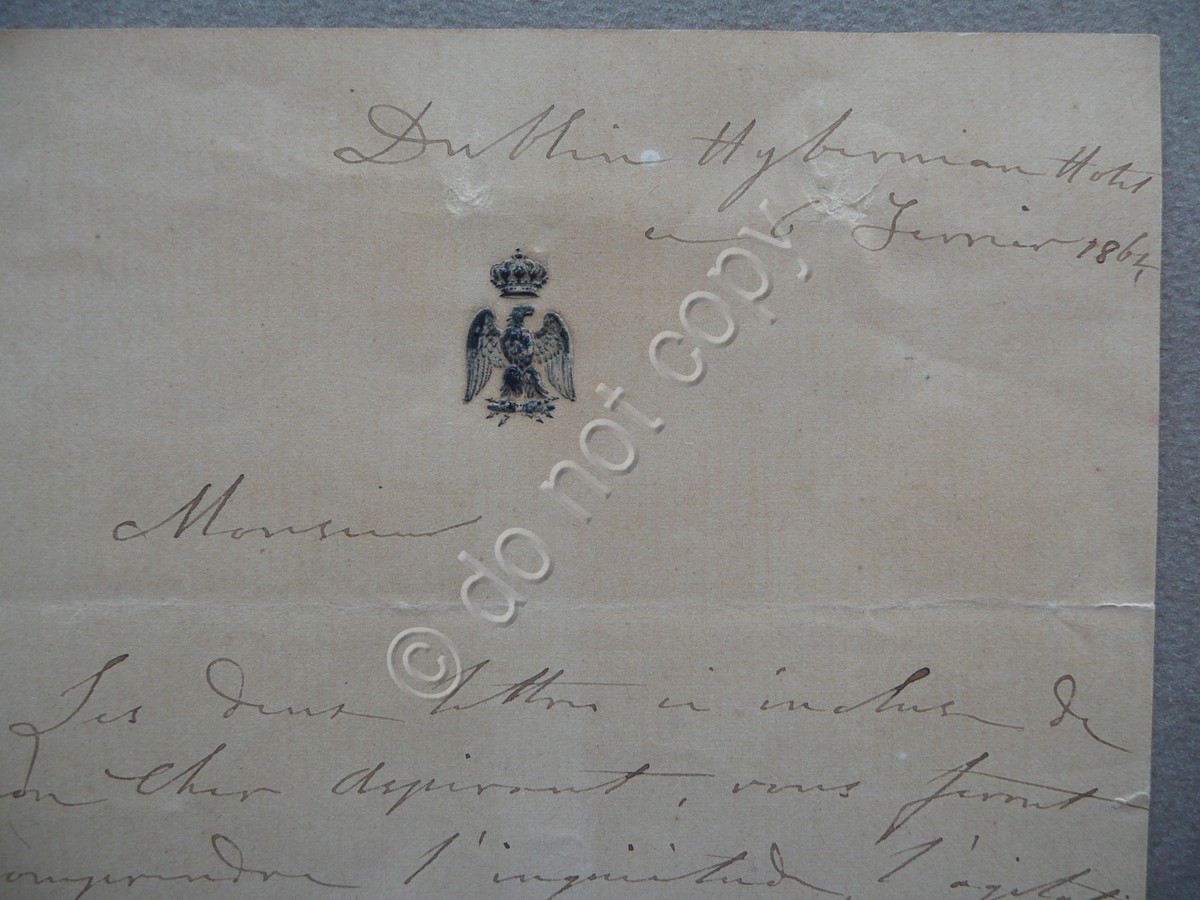 Dublin Hybernian Hotel
ce 6 Fevrier 1864
Monsieur
© do not copy
Les deux lettres ci incluse de
mon cher aspirant, vous feront
comprendre l'inquiétude, l'agitati